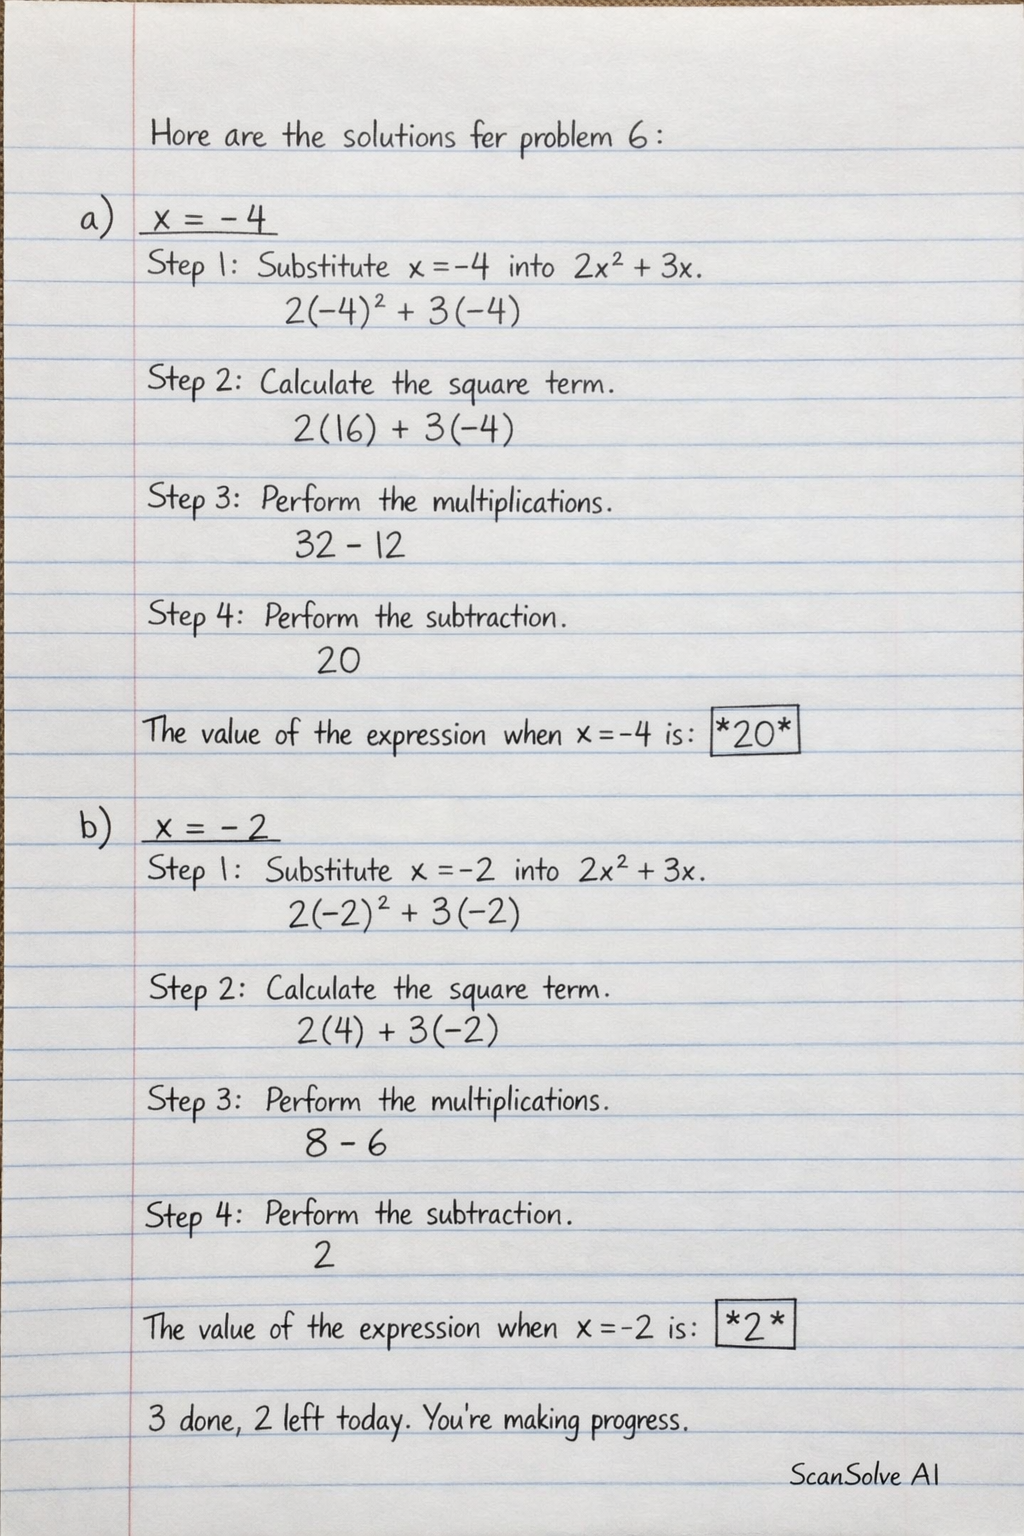 Hore are the solutions fer problem 6:
a) x = -4
Step 1: Substitute x = -4 into 2x² + 3x.
2(-4)² + 3(-4)
Step 2: Calculate the square term.
2(16) + 3(-4)
Step 3: Perform the multiplications.
32 - 12
Step 4: Perform the subtraction.
20
The value of the expression when x = -4 is: *20*
b) x = -2
Step 1: Substitute x = -2 into 2x² + 3x.
2(-2)² + 3(-2)
Step 2: Calculate the square term.
2(4) + 3(-2)
Step 3: Perform the multiplications.
8 - 6
Step 4: Perform the subtraction.
2
The value of the expression when x = -2 is: *2*
3 done, 2 left today. You're making progress.
ScanSolve AI